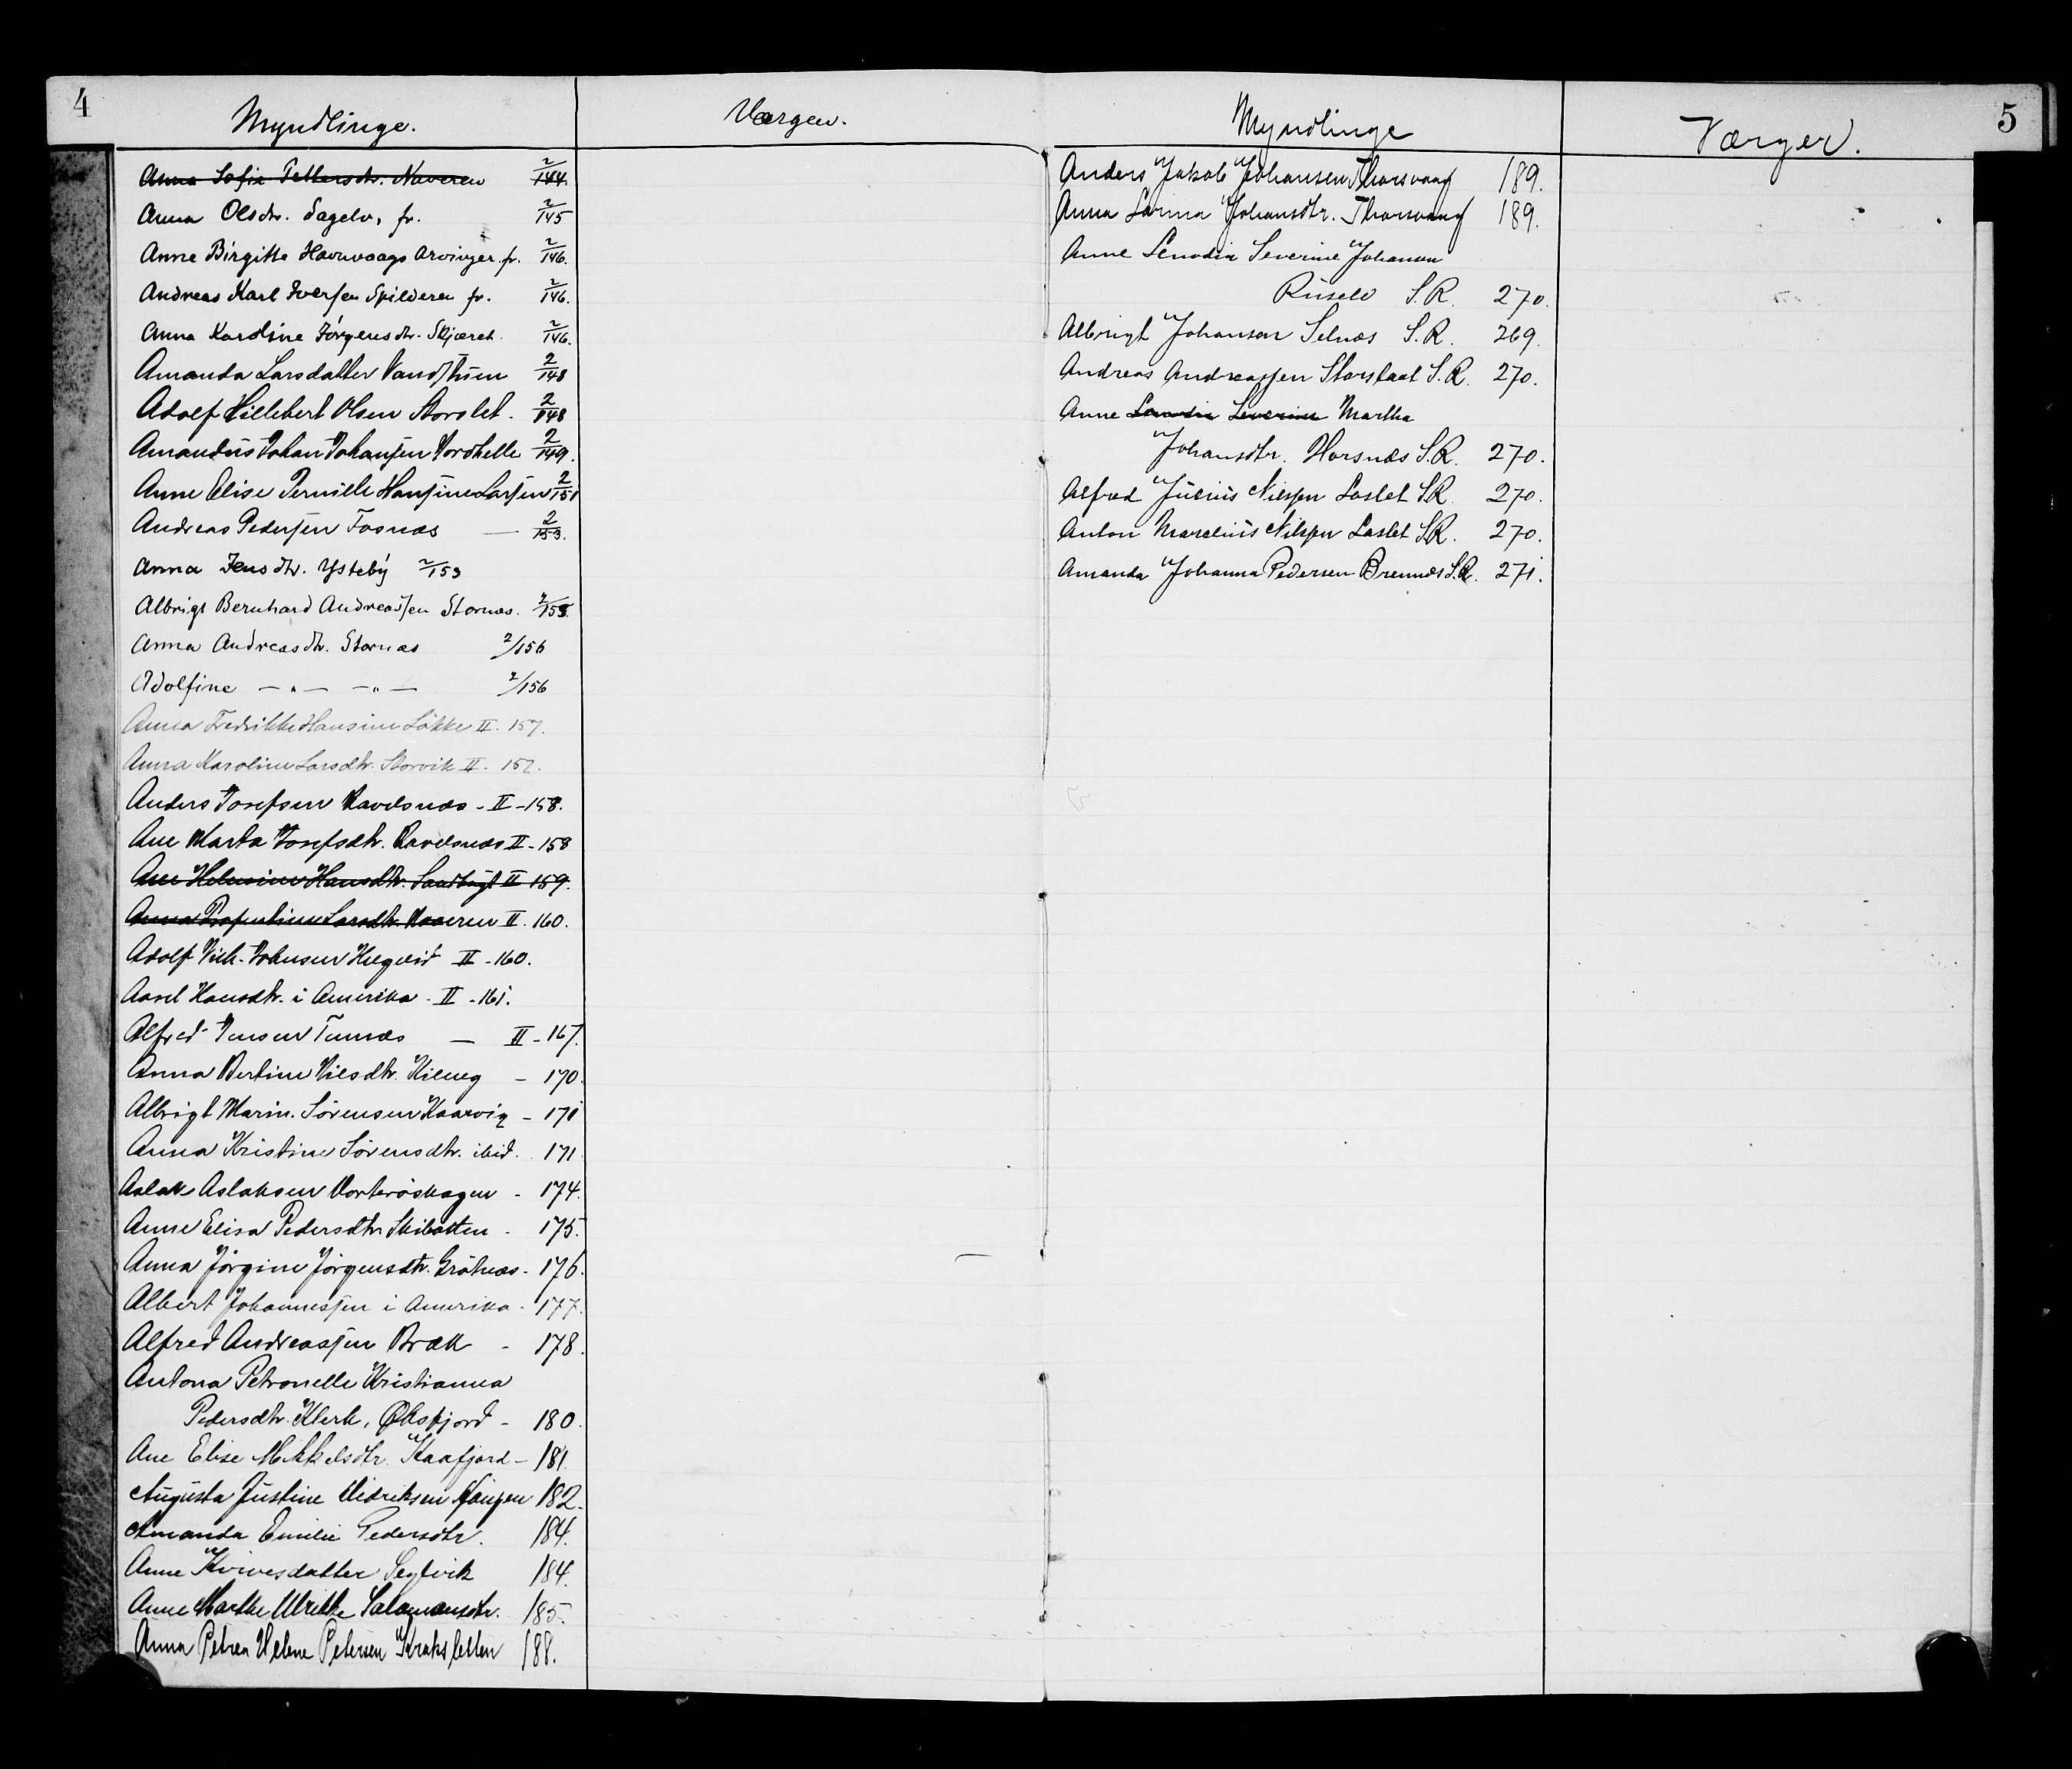 4
Myndlinge.
Værger.
Anna Sofie Pettersdtr. Naveren 2/144.
Anna Olsdtr. Sagelv, fr. 2/145
Anne Birgitte Havnvaags arvinger fr. 2/146.
Andreas Karl Iversen Spilderen fr. 2/146.
Anna Karoline Jörgensdtr. Skjæret 2/146.
Amanda Larsdatter Vandstuen 2/148
Adolf Hillebert Olsen Storslet. 2/148
Amandus Johan Johansen Nordkelle 2/149.
Anne Elise Pernille Hansine Larsen 2/151
Andreas Pedersen Tosnæs — 2/153.
Anna Jensdtr. Ysteby 2/153
Albrigt Bernhard Andreassen Stornæs. 2/155
Anna Andreasdtr. Stornæs 2/156
Adolfine — " — — " — 2/156
Anna Fredrikke Hansine Løkke II. 157.
Anna Karoline Larsdtr. Storvik II. 157.
Anders Josefsen Ravelsnæs - II - 158.
Ane Marta Josefsdtr. Ravelsnæs II - 158
Ane Helmine Hansdtr. Sandbugt II 159.
Anna Larsdtr. Naveren II. 160.
Adolf Vilh. Johnsen Hegelid II - 160.
Aasel Hansdtr. i Amerika - II - 161.
Alfred Jensen Tennæs — II - 167.
Anna Bertine Nilsdtr. Kileng - 170.
Albrigt Marin. Sörensen Kaarvig - 171
Anna Kristine Sörensdtr. ibid. 171
Aslak Aslaksen Vorteröskagen - 174.
Anne Elisa Pedersdtr Skibotten - 175.
Anna Jörgine Jörgensdtr. Grötnæs - 176.
Albert Johannesen i Amerika - 177.
Alfred Andreassen Bræk - 178.
Antona Petronelle Kristianna
Pedersdtr. Klerk, Øksfjord - 180.
Ane Elise Mikkelsdtr. Kaafjord - 181.
Augusta Justine Didriksen 182.
Amanda Emilie Pedersdtr. 184.
Anne Kvivesdatter Segelvik 184.
Anne Marthe Ulrikke Salamonsdtr. 185.
Anna Petrea Helene Petersen Krakssletten 188.
5
Myndlinge
Værger.
Anders Jakob Johansen Thorsvaag 189.
Anna Larina Johansdtr. Thorsvaag 189.
Anne Lenodia Severine Johansen
Riselv S.R. 270.
Albrigt Johansen Selnæs S.R. 269.
Andreas Andreassen Storslaat S.R. 270.
Anne Lenodia Severine Martha
Johansdtr. Horsnæs S.R. 270.
Alfred Julius Nilssen Laslet S.R. 270.
Anton Marelius Nilssen Laslet S.R. 270.
Amanda Johanna Pedersen Brennæs S.R. 271.